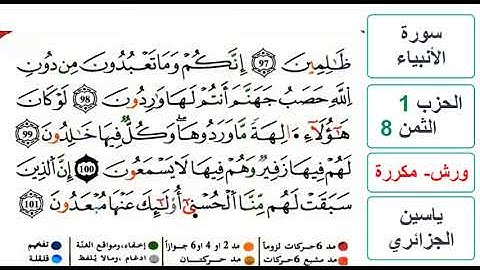 سورة
الأنبياء
الحزب 1
الثمن 8
ورش- مكررة
ياسين
الجزائري
ظَٰلِمِينَ 97 إِنَّكُمْ وَمَا تَعْبُدُونَ مِن دُونِ
اِ۬للَّهِ حَصَبُ جَهَنَّمَ أَنتُمْ لَهَا وَٰرِدُونَ 98 لَوْ كَانَ
هَٰٓؤُلَآءِ ا۬لِهَةٗ مَّا وَرَدُوهَا وَكُلّٞ فِيهَا خَٰلِدُونَ 99
لَهُمْ فِيهَا زَفِيرٞ وَهُمْ فِيهَا لَا يَسْمَعُونَ 100 إِنَّ اَ۬لذِينَ
سَبَقَتْ لَهُم مِّنَّا اَ۬لْحُسْنَىٰٓ أُوْلَٰٓئِكَ عَنْهَا مُبْعَدُونَ 101
مد 6 حركات لزوماً مد 2 أو 4 أو 6 جوازاً إخفاء، ومواقع الغنة تفخيم
مد مشبع 6 حركات مد حركتان ادغام ، ومالا يُلفظ قلقلة